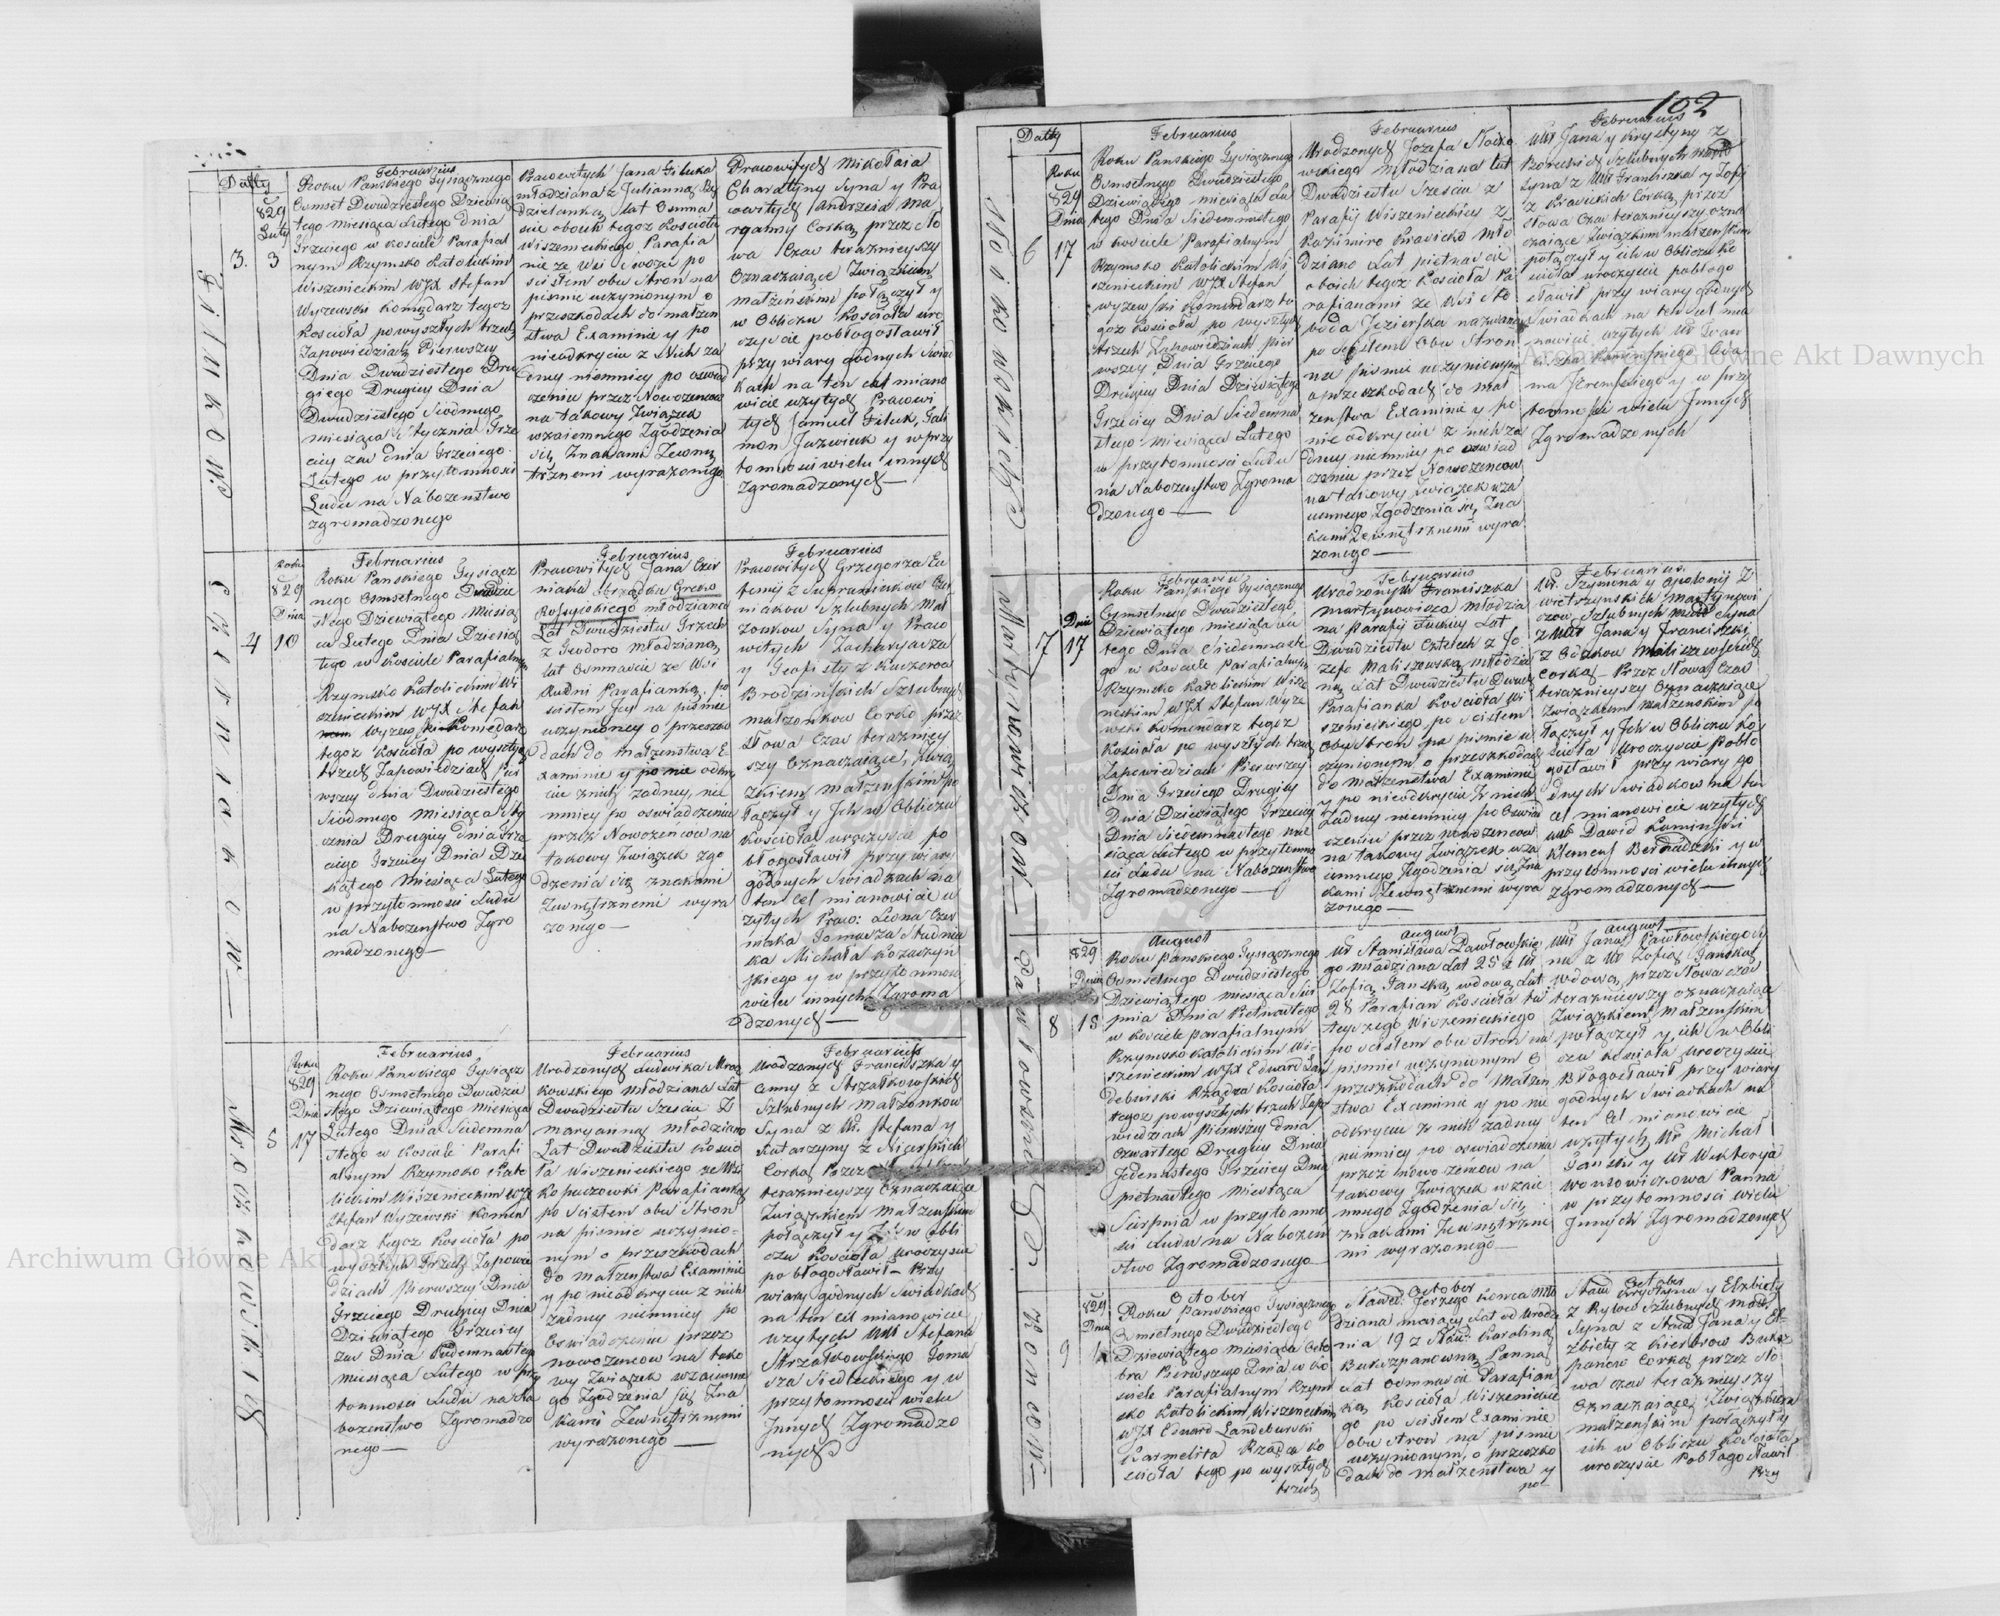 Datty
Februarius
Roku Panskiego Tysiącznego
Osmset Dwudziestego Dziewią
tego miesiąca Lutego Dnia
Trzeciego w Kosciele Parafial
nym Rzymsko Katolickim
Wiszenieckim WJX Stefan
Wyzewski Komendarz tegoz
Koscioła po wyszłych trzech
Zapowiedziach Pierwszey
Dnia Dwudziestego Dru
giego Drugiey Dnia
Dwudziestego Siodmego
miesiąca Stycznia Trze
ciey zas dnia trzeciego
Lutego w przytomnosci
Ludu na Nabozenstwo
zgromadzonego
829
Luty
3. 3
Pracowitych Jana Filuka
młodziana z Julianną
lat Osmna
scie oboich tegoz Kosciola
Wiszenieckiego Parafia
nie ze Wsi po
scisłem obu Stron na
pismie uczynionym o
przeszkodach do małzen
stwa Examinie y po
nieodkryciu z Nich za
dney niemniey po oswiad
czeniu przez Nowozencow
na takowy Związek
wzaiemnego Zgodzenia
się Znakami Zewnę
trznemi wyrazonego
Pracowitych Mikołaia
Charatyny Syna y Pra
cowitych Andrzeia Ma
rganny Corką przez Sło
wa Czas teraznieyszy
Oznaczaiące Związkiem
małzenskim połączył y
w Obliczu Kosciola uro
czyscie pobłogosławił
przy wiary godnych Swiad
kach na ten cel miano
wicie uzytych Pracowi
tych Samuel Filuk, Fili
mon Juzwiuk y w przy
tomnosci wielu innych
Zgromadzonych
Filukow
Roku
829
Dnia
4 10
Februarius
Roku Panskiego Tysiącz
nego Osmsetnego Dwudzie
stego Dziewiątego Miesią
ca Lutego Dnia Dziesią
tego w Kosciele Parafialnym
Rzymsko Katolickim Wi
szenieckim WJX Stefan
Wyzewski Komendarz
tegoz Kosciola po wyszłych
trzech Zapowiedziach Pier
wszey dnia Dwudziestego
Siodmego Miesiąca Sty
cznia Drugiey dnia trze
ciego Trzeciey Dnia Dzie
siątego Miesiąca Lutego
w przytomnosci Ludu
na Nabozenstwo Zgro
madzonego
Februarius
Pracowitych Jana Czer
niaka obrządku Greko
Rossyiskiego młodziana
Lat Dwudziestu Trzech
z Teodorą młodzianą
lat Osmnascie ze Wsi
Rudni Parafianką, po
scisłem Jey na pismie
uczynioney o przeszko
dach do małzenstwa E
xaminie y po nie odkry
ciu z nich zadney, nie
mniey po oswiadczeniu
przez Nowozencow na
takowy Związek zgo
dzenia się znakami
Zewnętrznemi wyra
zonego
Februarius
Pracowitych Grzegorza Eu
femiy z Czer
niakow Szlubnych Mał
zonkow Syna y Praco
witych Zacharyasza
y Teofili z Kucerow
Brodzinskich Szlubnych
małzonkow Corkę przez
słowa Czas teraznieyszy
Oznaczaiące, Zwią
zkiem małzenskim po
łączył y Ich w Obliczu
Kosciola uroczyscie po
błogosławił przy wiary
godnych Swiadkach na
ten cel mianowicie u
zytych Praco: Leona Czer
niaka Tomasza Studnia
ka Michała Kozaczyn
skiego y w przytomnosci
wielu innych Zgroma
dzonych
Czerniakow
Roku
829
Dnia
5 17
Februarius
Roku Panskiego Tysiącz
nego Osmsetnego Dwudzie
stego Dziewiątego Miesiąca
Lutego Dnia Siedemna
stego w Kosciele Parafi
alnym Rzymsko Kato
lickim Wiszenieckim WJX
Stefan Wyzewski Komen
darz tegoz Kosciola po
wyszłych trzech Zapowie
dziach Pierwszey Dnia
Trzeciego Drugiey Dnia
Dziewiątego Trzeciey
zas Dnia Siedemnastego
miesiąca Lutego w przy
tomnosci Ludu na Na
bozenstwo Zgromadzo
nego
Februarius
Urodzonych Ludwika Mrocz
kowskiego młodziana Lat
Dwudziestu Szesciu z
Maryanną młodzianą
Lat Dwudziestu Koscio
ła Wiszenieckiego ze Wsi
Kopaczowki Parafianką
po scisłem obu Stron
na pismie uczynio-
nym o przeszkodach
do małzenstwa Examinie
y po nieodkryciu z nich
zadney niemniey po
Oswiadczeniu przez
nowozencow na tako
wy Związek wzaiemne
go Zgodzenia się Zna
kami Zewnętrznymi
wyrazonego
Februarius
Urodzonych Franciszka y
Anny z Strzałkowskich
Szlubnych Małzonkow
Syna z Ur. Stefana y
Katarzyny z
Corką Przez
teraznieyszy Oznaczaiące
Związkiem Małzenskim
połączył y Ich w obli
czu Kosciola uroczyscie
pobłogosławił Przy
wiary godnych Swiadkach
na ten cel mianowicie
uzytych Ur Stefana
Strzałkowskiego Toma
sza Siedleckiego y w
przytomnosci wielu
Innych Zgromadzo
nych
Mroczkowskich
102
Datty
Roku
829
Dnia
6 17
Februarius
Roku Panskiego Tysiącznego
Osmsetnego Dwudziestego
Dziewiątego miesiąca Lu
tego Dnia Siedemnastego
w kosciele Parafialnym
Rzymsko Katolickim Wi
szenieckim WJX Stefan
Wyzewski Komendarz te
goz Kosciola po wyszłych
trzech Zapowiedziach Pier
wszey Dnia Trzeciego
Drugiey Dnia Dziewiątego
Trzeciey Dnia Siedemna
stego miesiąca Lutego
w przytomnosci Ludu
na Nabozenstwo Zgroma
dzonego
Februarius
Urodzonych Jozefa
młodziana lat
Dwudziestu Szesciu z
Parafij Wiszenieckiey z
Kazimirą Krasicką mło
dzianą Lat pietnascie
oboich tegoz Kosciola Pa
rafianami ze Wsi Sło
boda Jezierska nazwana
po scisłem Obu Stron
na pismie uczynionym
o przeszkodach do mał
zenstwa Examinie y po
nie odkryciu z nich za
dney niemniey po oswiad
czeniu przez Nowozencow
na takowy Związek wza
iemnego Zgodzenia się, Zna
kami Zewnętrznemi wyra
zonego
Februarius
Ur Jana y Krystyny z
Boreckich Szlubnych
Syna z Ur Franciszka y Zofij
z Corką przez
słowa Czas teraznieyszy ozna
czaiące Związkiem małzenskim
połączył y ich w Obliczu Ko
sciola uroczyscie pobłogo
sławił przy wiary godnych
Swiadkach na ten cel mia
nowicie uzytych Ur
Ada
ma y w przy
tomnosci wielu Innych
Zgromadzonych
Dnia
7 17
Februarius
Roku Panskiego Tysiącznego
Osmsetnego Dwudziestego
Dziewiątego miesiąca Lu
tego Dnia Siedemnaste
go w Kosciele Parafialnym
Rzymsko Katolickim Wisze
nieckim WJX Stefan Wyze
wski Komendarz tegoz
Kosciola po wyszłych trzech
Zapowiedziach Pierwszey
Dnia Trzeciego Drugiey
Dnia Dziewiątego Trzeciey
Dnia Siedemnastego mie
siąca Lutego w przytomno
sci Ludu na Nabozenstwo
Zgromadzonego
Februarius
Urodzonych Franciszka
Martynowicza Młodzia
na Parafij Łuckiey Lat
Dwudziestu Czterech z Jo
zefą Maliszewską młodzia
ną Lat Dwudziestu Dwuch
Parafianka Kosciola Wi
szenieckiego po scisłem
Obu Stron na pismie u
czynionym o przeszkodach
do Małzenstwa Examinie
y po nieodkryciu z nich
Zadney niemniey po Oswiad
czeniu przez nowozencow
na takowy Związek wza
iemnego Zgodzenia się Zna
kami Zewnętrznemi wyra
zonego
Februarius
Ur. Szymona y Apolonij z
Wietrzynskich Martynowi
czow Szlubnych Małż Syna
z Ur Jana y Franciszki
z Maliszewskich
Corką Przez Słowa Czas
teraznieyszy Oznaczaiące
Związkiem Małzenskim po
łączył y Ich w Obliczu Ko
sciola uroczyscie Pobło
gosławił przy wiary go
dnych Swiadkow na ten
cel mianowicie uzytych
Ur Dawid Kaminski
Klemens y w
przytomnosci wielu innych
zgromadzonych
Martynowiczow
829
Dnia
8 15
August
Roku Panskiego Tysiącznego
Osmsetnego Dwudziestego
Dziewiątego miesiąca Sier
pnia Dnia Pietnastego
w kosciele parafialnym
Rzymsko Katolickim Wi-
szenieckim WJX Edward Lan
deburski Rządca Kosciola
tegoz po wyszłych trzech Zapo
wiedziach Pierwszey dnia
Czwartego Drugiey Dnia
Jedenastego Trzeciey Dnia
pietnastego Miesiąca
Sierpnia w przytomno
sci Ludu na Nabozen
stwo Zgromadzonego
August
Ur Stanisława Pawłowskie
go młodziana Lat 25 z Ur
Zofią Janską wdową Lat
28 Parafian Kosciola tu
teyszego Wiszenieckiego
po scisłem obu stron na
pismie uczynionym o
przeszkodach do Małzen
stwa Examinie y po nie
odkryciu z nich zadney
niemniey po oswiadczeniu
przez nowozencow na
takowy Związek wzaie
mnego Zgodzenia się
znakami Zewnętrzne
mi wyrazonego
August
Ur Jana Pawłowskiego Sy
na z Ur Zofią Janską
wdową, przez słowa czas
teraznieyszy oznaczaiące
Związkiem Małzenskim
połączył y ich w Obli
czu Kosciola uroczyscie
Błogosławił przy wiary
godnych Swiadkach na
ten cel mianowicie
uzytych Ur Michał
Janski y Ur Wiktoryą
Panna
w przytomnosci wielu
Innych Zgromadzonych
Pawłowskich
829
Dnia
9 1
October
Roku Panskiego Tysiącznego
Osmsetnego Dwudziestego
Dziewiątego miesiąca Octo
bra Pierwszego Dnia w Ko
sciele Parafialnym Rzym
sko Katolickim Wiszenieckim
WJX Edward Landeburski
Karmelita Rządca Ko
sciola tego po wyszłych
trzech
October
Sławet: Jerzego Konca Mło
dziana maiący Lat od uro
dzenia 19 z Sław: Karoliną
Bukszpanowną Panną
Lat Osmnascie Parafian
ką Kosciola Wiszenieckie
go po scisłem Examinie
obu stron na pismie
uczynionym, o przeszko
dach do małzenstwa y
po
October
Sław Krystyana y Elzbiety
z Szlubnych Małż
Syna z Sław Jana y El-
zbiety z Buksz
panow Corką przez sło
wa czas teraznieyszy
Oznaczaiące, Związkiem
małzenskim połączył y
ich w Obliczu Kosciola
uroczyscie Pobłogosławił
Przy
Koncow
Archiwum Główne Akt Dawnych
Archiwum Główne Akt Dawnych